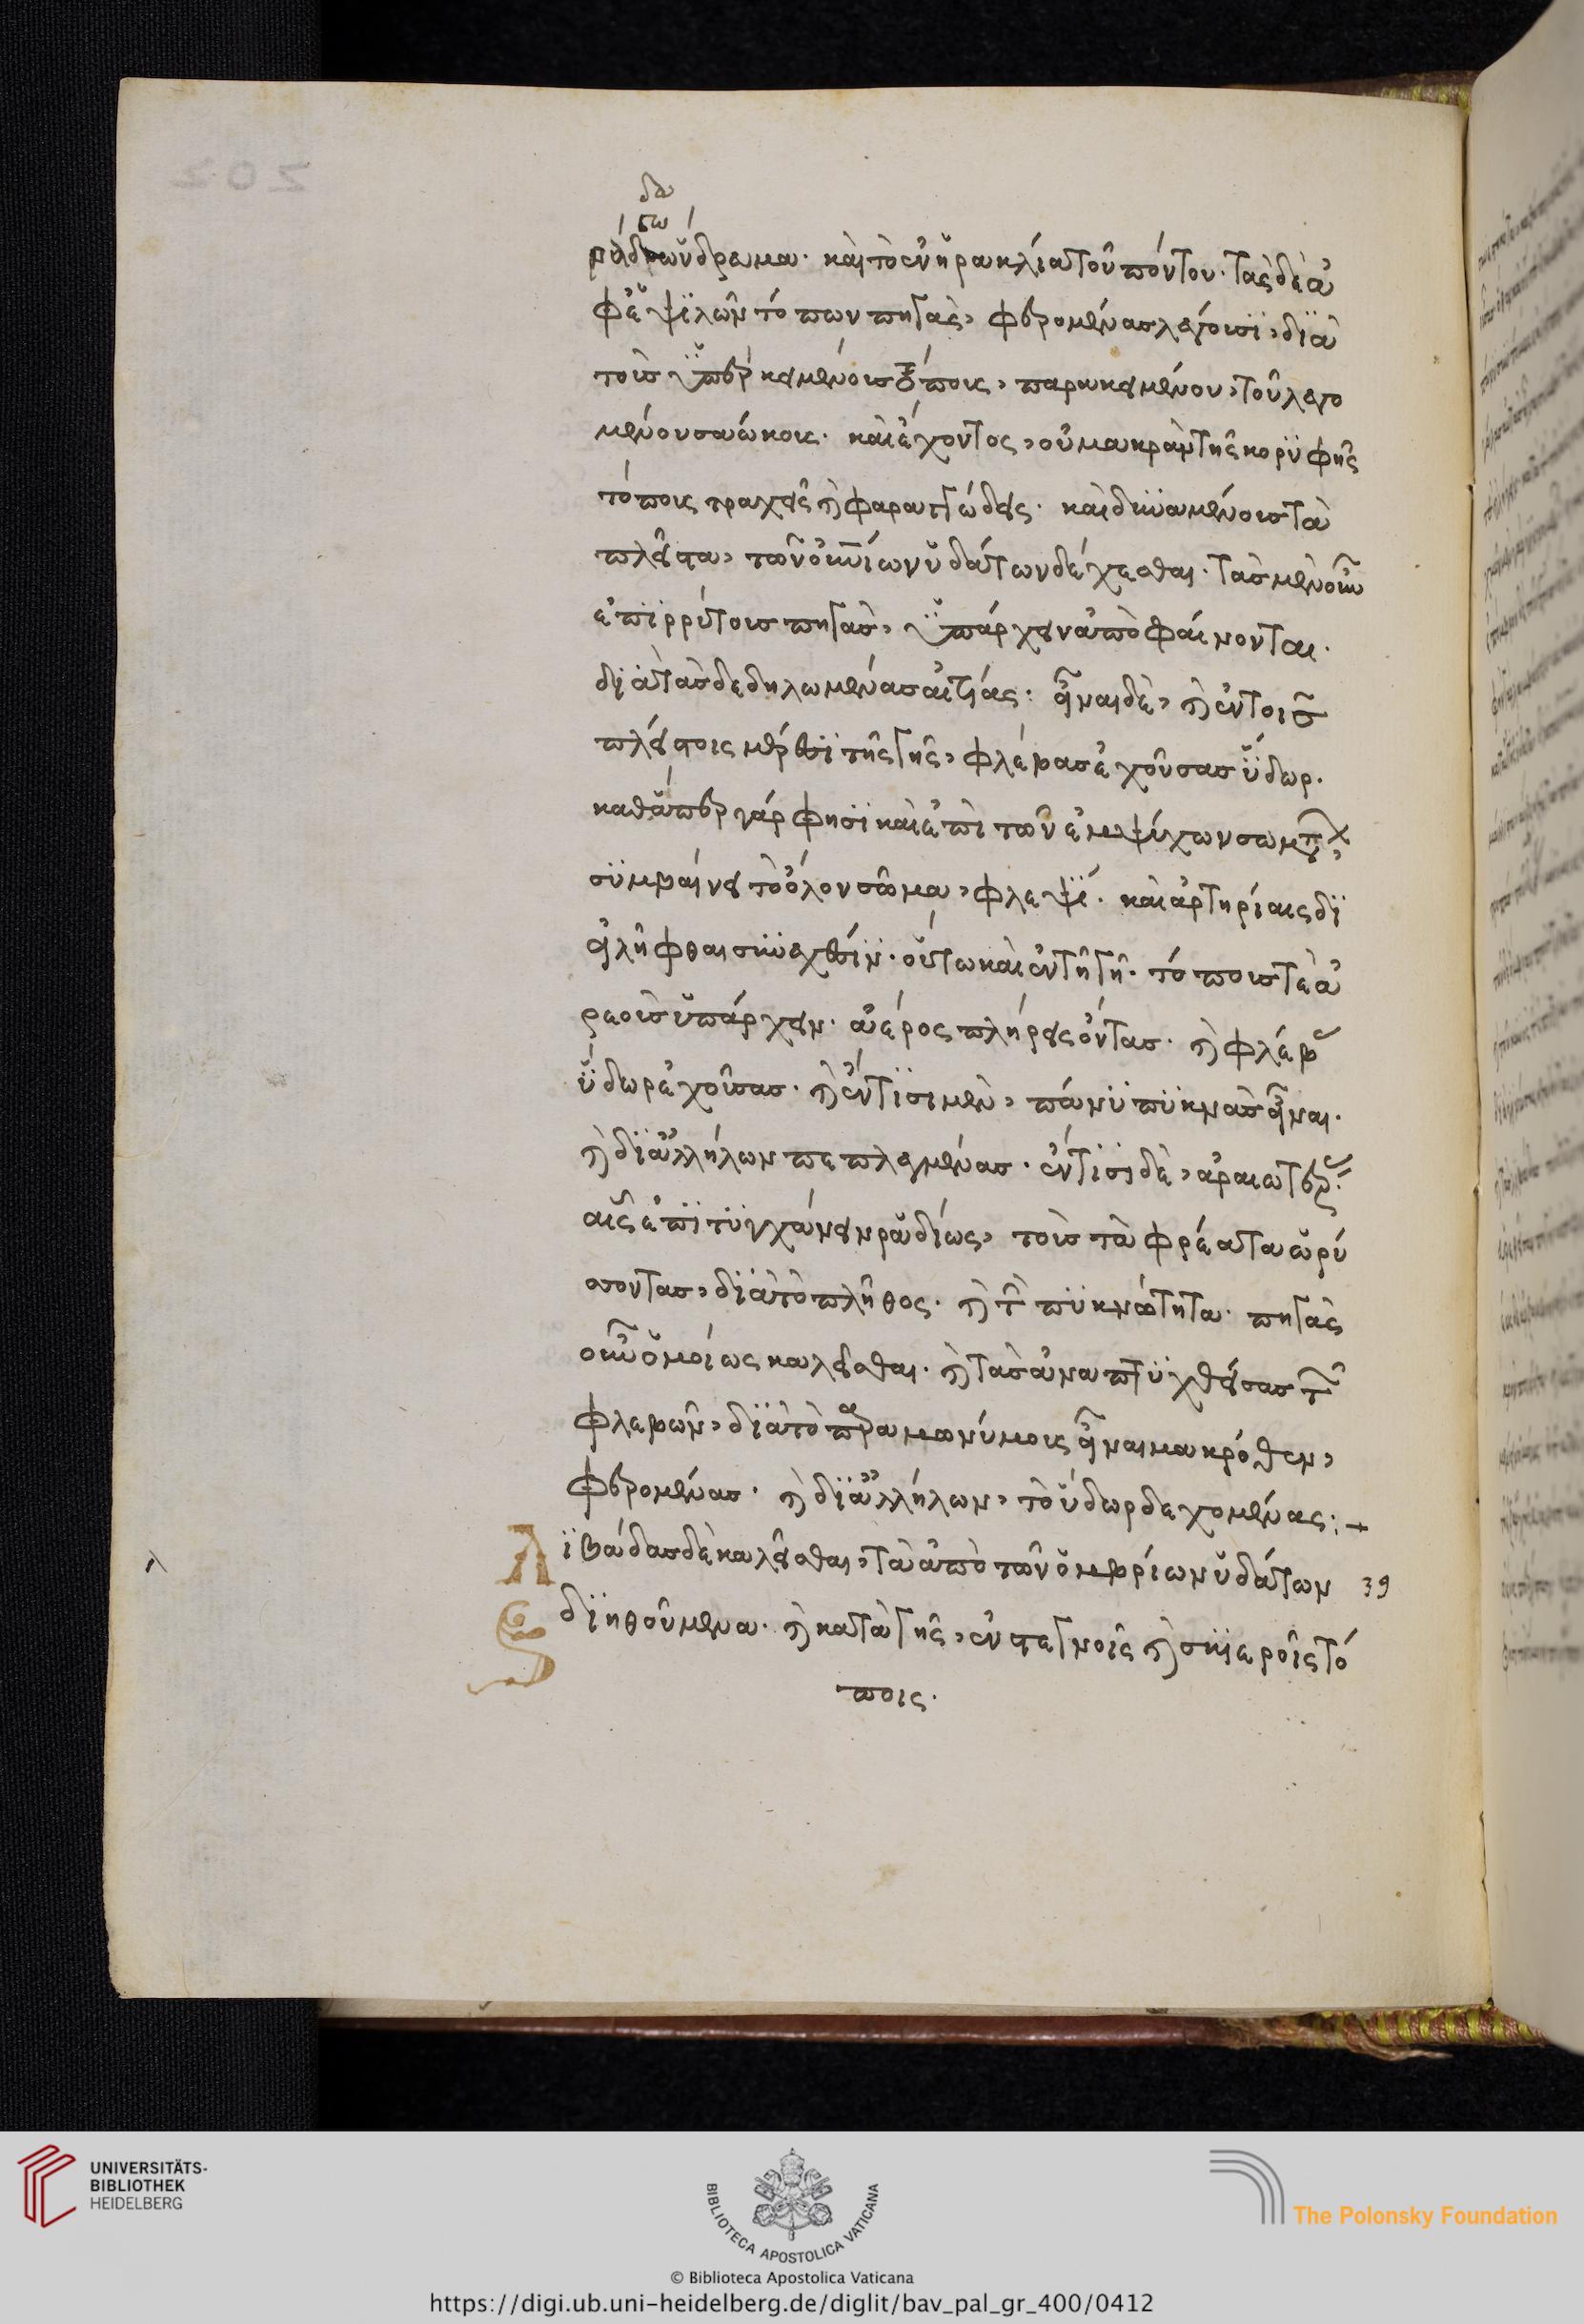 202
δα
γω
βάδρων δραμα· καὶ τὸ ἐν ἡρακλία τοῦ πόντου· τὰς δὲ ἀ
φ' ὑψϊλῶν τόπων πηγὰς, φερομένας λέγουσϊ, δϊὰ
τοὺς ὑπερκειμένους τόπους, παρακειμένου, τοῦ λεγο
μένου σαώκους· καὶ ἔχοντος, οὐ μακρὰν τῆς κορϋφῆς
τόπους τραχεῖς καὶ φαραγγώδεις· καὶ δϋναμένους τὰ
πλεῖστα, τῶν ουνίων ὑδάτων δέχεσθαι· τὰς μὲν οὖν
ἐπϊρρύτους πηγὰς, ὑπάρχειν ἀποφαίνονται·
δϊὰ τὰς δεδηλωμένας αἰτίας: εἶναι δὲ, καὶ ἐν τοῖς
πλείστοις μέρεσϊ τῆς γῆς, φλέβας ἐχούσας ὕδωρ·
καθάπερ γάρ φησϊ καὶ ἐπὶ τῶν ἐμψύχων σωμάτων,
σϋμβαίνει τὸ ὅλον σῶμα, φλεψϊ· καὶ ἀρτηρίαις δϊ
ειλῆφθαι σϋνεχέσϊν· οὕτω καὶ ἐν τῆ γῆ· τόπους τε ἀ
ραιοὺς ὑπάρχειν· ἀέρος πλήρεις ὄντας· καὶ φλέβας
ὕδωρ ἐχούσας· καὶ ἔν τϊσι μὲν, πάνϋ πϋκνὰς εἶναι·
καὶ δϊ' ἀλλήλων πεπλεγμένας· ἔν τϊσϊ δὲ, ἀραιωτέρας:
αἷς ἐπϊτϋγχάνειν ῥαδίως, τοὺς τὰ φρέατα ὀρύ
σσοντας, δϊὰ τὸ πλῆθος· καὶ τὴν πϋκνότητα· πηγὰς
οὖν ὁμοίως καλεῖσθαι· καὶ τὰς ἀναπτϋχθείσας τῶν
φλεβῶν, δϊὰ τὸ παραμονίμους εἶναι μακρόθεν,
φερομένας· καὶ δϊ' ἀλλήλων, τὸ ὕδωρ δεχομένας:+
Λϊβάδας δὲ καλεῖσθαι, τὰ ἀπὸ τῶν ὀμβρίων ὑδάτων 39
δϊηθούμενα· καὶ κατὰ γῆς, ἐν στεγνοῖς καὶ σκϊεροῖς τό
ποις·
λ
UNIVERSITÄTS-
BIBLIOTHEK
HEIDELBERG
BIBLIOTECA APOSTOLICA VATICANA
The Polonsky Foundation
© Biblioteca Apostolica Vaticana
https://digi.ub.uni-heidelberg.de/diglit/bav_pal_gr_400/0412